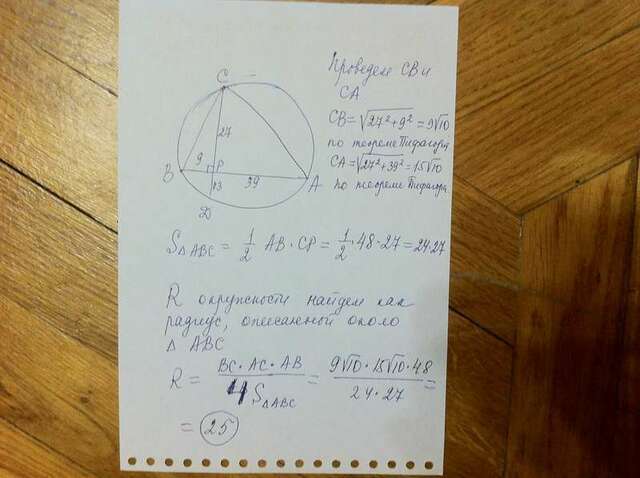 Проведем CB и
CA
CB = √27² + 9² = 9√10
по теореме Пифагора
CA = √27² + 39² = 15√10
по теореме Пифагора
C
27
9
P
B
13
39
A
D
S△ABC = 1/2 AB · CP = 1/2 · 48 · 27 = 24·27
R окружности найдем как
радиус, описанной около
△ ABC
R = BC · AC · AB / 4 S△ABC = 9√10 · 15√10 · 48 / 24 · 27 =
= 25